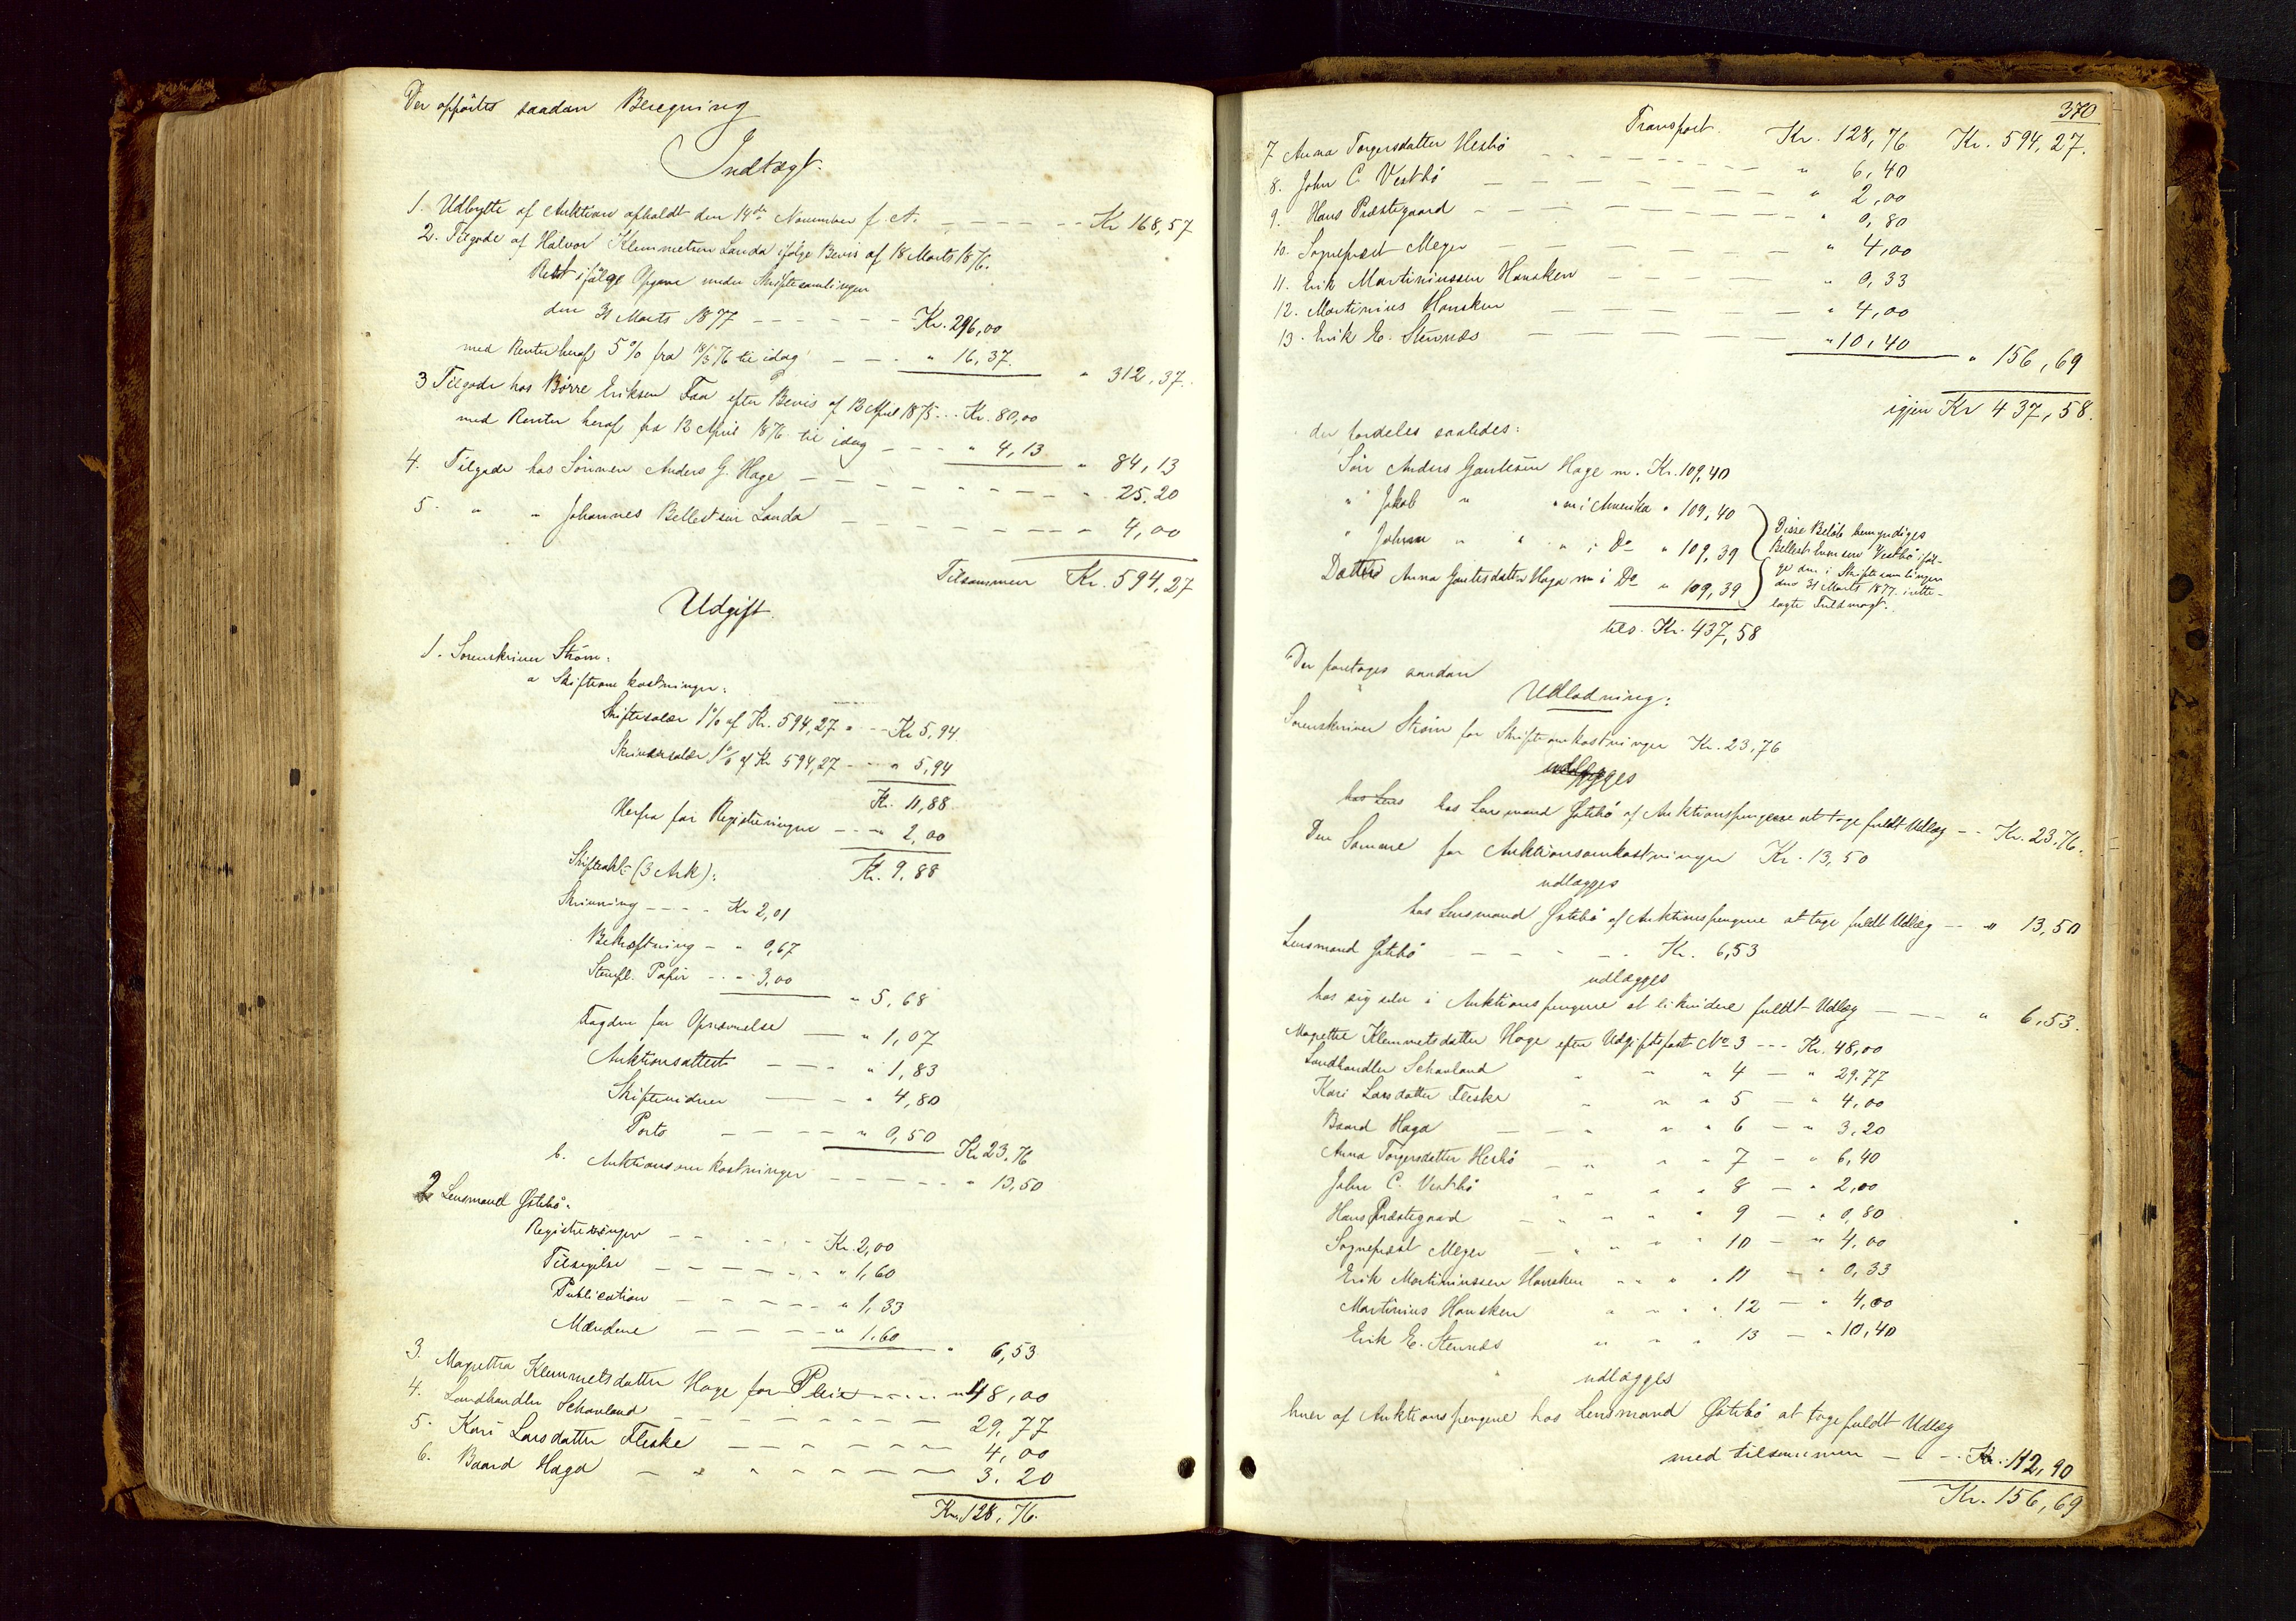 Der opførtes saadan Beregning
Indtægt.
1. Udbytte af Auktion afholdt den 14de November f. A. - - - - - - Kr 168,57
2. Tilgode af Halvor Klemmetsen Landa ifølge Bevis af 18 Marts 1876.
Rest ifølge Opgave under Skiftesamlingen
den 31 Marts 1877 - - - - - - Kr. 296,00
med Renter heraf 5% fra 18/3 76 til idag - - - " 16,37.
" 312,37.
3 Tilgode hos Børre Eriksen Faa efter Bevis af 12 April 1875... Kr. 80,00
med Renter heraf fra 12 April 1876 til idag - - - " 4,13
" 84,13
4. Tilgode hos Sønnen Anders G. Hage - - - - - - " 25.20
5. " " Johannes Bellestsen Landa - - - - - " 4,00
Tilsammen Kr. 594,27
Udgift.
1. Sorenskriver Strøm:
a Skifteomkostninger:
Skiftesalær 1% af Kr. 594,27 " - - Kr 5,94
Skriversalær 1% af Kr 594,27 - - " 5,94
Kr. 11,88.
Herfra for Registreringen - - - " 2,00
Kr. 9,88
Skifteakt (3 Ark):
Skrivning - - - - Kr 2,01
Bekræftning - " 0,67
Stempl. Papir - - " 3,00
" 5,68
Fragden for Opnævnelse - " 1,07
Auktionsattest - - - " 1,83
Skiftevidner - - - " 4,80
Porto - - - - " 0,50 Kr 23.76
b. Auktionsomkostninger - - - - - " 13,50
2 Lensmand Østebø:
Registreringen - - - - - Kr. 2,00
Tilsigelse - - - - - - " 1,60
Publication - - - - - " 1,33
Mændene - - - - " 1.60
" 6,53
3. Magretha Klemmetsdatter Hage for Pleie - - - - " 48,00
4. Landhandler Schauland - - - - - - - 29,77
5. Kari Larsdatter Fleske - - - - - - 4,00
6. Baard Haga - - - - - - - 3.20
Kr. 128,76.
370
Transport. Kr. 128,76 Kr. 594,27.
7 Anna Torgersdatter Hesbø - - - - - - - - " 6,40
8. John C. Vestbø - - - - - - - - " 2,00
9. Hans Præstegaard - - - - - - - - " 0,80
10. Sogneprest Meyer - - - - - - " 4,00
11. Erik Martiniussen Hansken - - - - - " 0,33
12. Martinius Hansken - - - - - - " 4,00
13. Erik E. Stennæs - - - - - " 10,40
" 156,69
igjen Kr 437,58.
der fordeles saaledes:
Søn Anders Gautesen Hage m. Kr. 109,40
" Jakob " " m i Amerika " 109,40
" Johan " " " i Do " 109,39
Datter Anna Gautesdatter Haga m i Do " 109,39
Disse Beløb bemyndiges
Bellest Iversen Vestbø iføl-
ge den i Skiftesamlingen
den 31 Marts 1877 irette-
lagte Fuldmagt.
tils. Kr. 437,58
Der foretages saadan
Udlodning:
Sorenskriver Strøm for Skifteomkostninger Kr. 23,76
udlægges
hos Lens hos Lensmand Østebø af Auktionspengene at tage fuldt Udlæg - - Kr. 23.76.
Den Samme for Auktionsomkostninger Kr. 13,50
udlægges
hos Lensmand Østebø af Auktionspengene at tage fuldt Udlæg - - " 13,50
Lensmand Østebø - - - - - Kr. 6,53
udlægges
hos sig selv i Auktionspengene at likvidere fuldt Udlæg - - - - " 6,53.
Magrethe Klemmetsdatter Hage efter Udgiftspost No 3 - - - Kr. 48,00
Landhandler Schauland " " " 4 - " 29.77
Kari Larsdatter Fleske " " " 5 - " 4,00
Baard Haga - - " " " 6 - " 3,20
Anna Torgersdatter Hesbø - " " " 7 - " 6,40
John C. Vestbø " " " 8 - " 2,00
Hans Præstegaard - " " " 9 - " 0,80
Sogneprest Meyer - " " " 10 - " 4,00
Erik Martiniussen Hansken " " " 11 - " 0,33
Martinius Hansken " " " 12 - " 4,00
Erik E. Stennæs " " " 13 - " 10,40
udlægges
hver af Auktionspengene hos Lensmand Østebø at tage fuldt Udlæg
med tilsammen - " - Kr. 112,90
Kr. 156,69